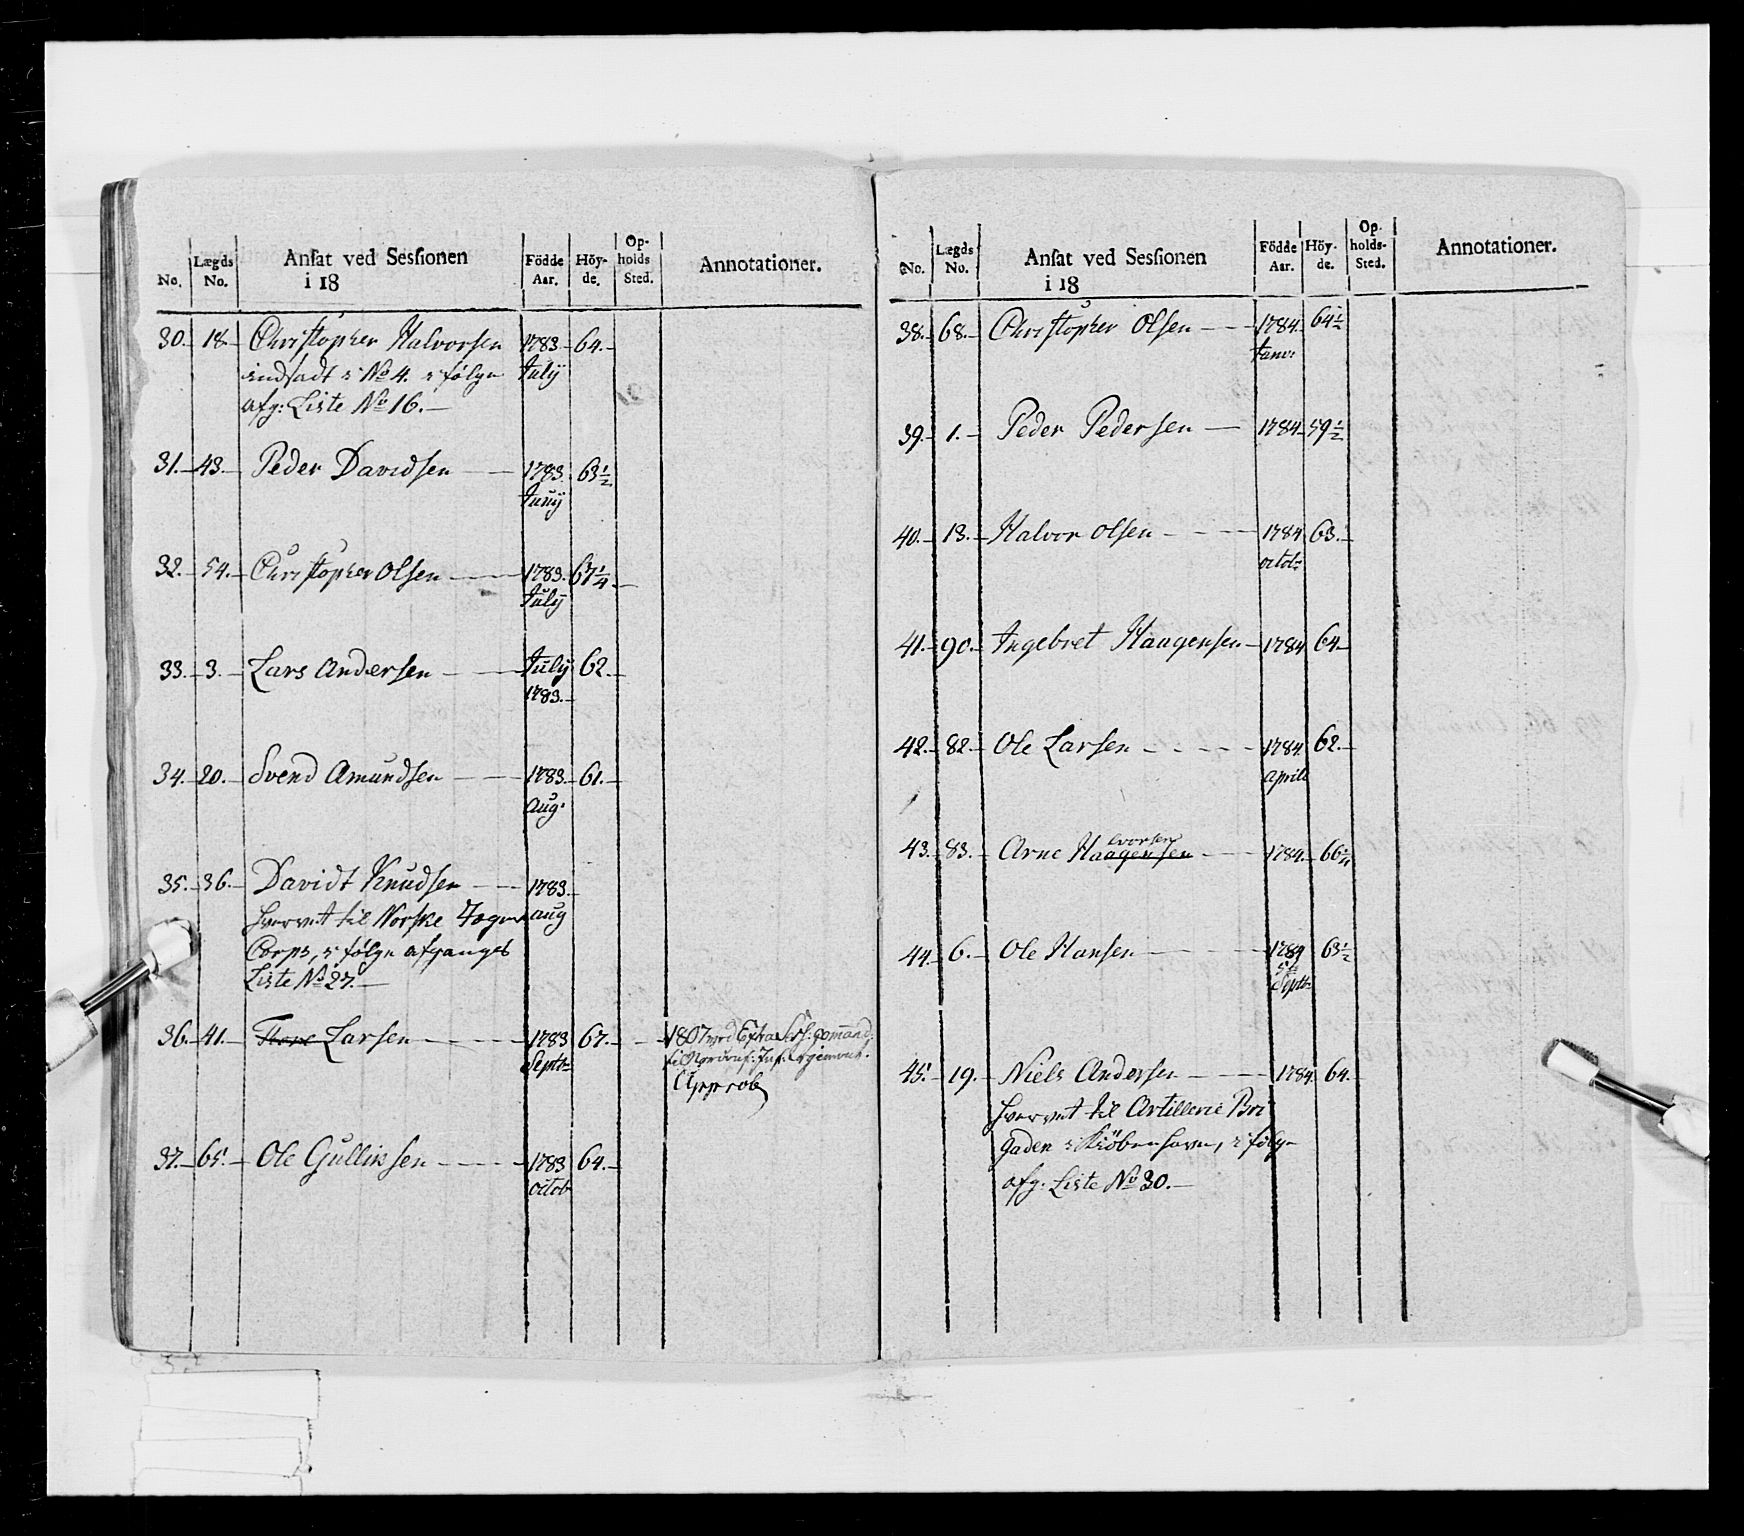 No. Lægds No. Ansat ved Sessionen i 18 Födde Aar. Höyde. Opholds Sted. Annotationer.
30. 18. Christopher Halvorsen 1783. 64.
indsadt i No 4. i følge July
afg: Liste No 16.
31. 43. Peder Davidsen 1783. 63 1/2
Juny
32. 54. Christopher Olsen 1783. 67 1/4
July
33. 3. Lars Andersen July 62.
1783.
34. 20. Svend Amundsen 1783. 61.
Aug.
35. 36. Davidt Knudsen 1783.
hvervet til Norske Jæger aug
Corps, i følge afgangs
Liste No 27.
36. 41. Thore Larsen 1783 67. 1807 ved Extra Sess: comand:
Septbr Inf: Regiment.
Approb
37. 65. Ole Gulliksen 1783 64.
octob
No. Lægds No. Ansat ved Sessionen i 18 Födde Aar. Höyde. Opholds Sted. Annotationer.
38. 68. Christopher Olsen 1784. 64 1/2
Janv:
39. 1. Peder Pedersen 1784. 59 1/2
40. 13. Halvor Olsen 1784. 63.
octob:
41. 90. Ingebret Haagensen 1784 64.
42. 82. Ole Larsen 1784. 62.
Aprill
lvorsen
43. 83. Arne Haagensen 1784. 66 1/4
44. 6. Ole Hansen 1784 63 1/2
Septbr
45. 19. Niels Andersen 1784. 64.
hvervet til Artillerie Bri
gaden i Kiöbenhavn, i følge
afg: Liste No 30.